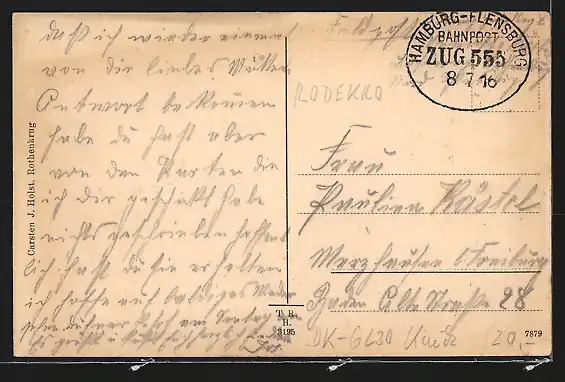 daß ich wieder einmal
von dir liebes Mutter
Antwort bekommen
habe du hast aber
von den Karten die
ich dir geschickt habe
nichts geschrieben hoffent
lich hast du sie erhalten
ich hoffe auf baldiges Wieder
sehn
Carsten J. Holst, Rothenkrug
Feldpost
HAMBURG-FLENSBURG
BAHNPOST
ZUG 555
8 7 16
RODEKRO
Frau
Paulina Kästel
Merzhausen b. Freiburg
Baden Alte Straße 28
T. R.
H.
3195
7879
DK-6230
20,-